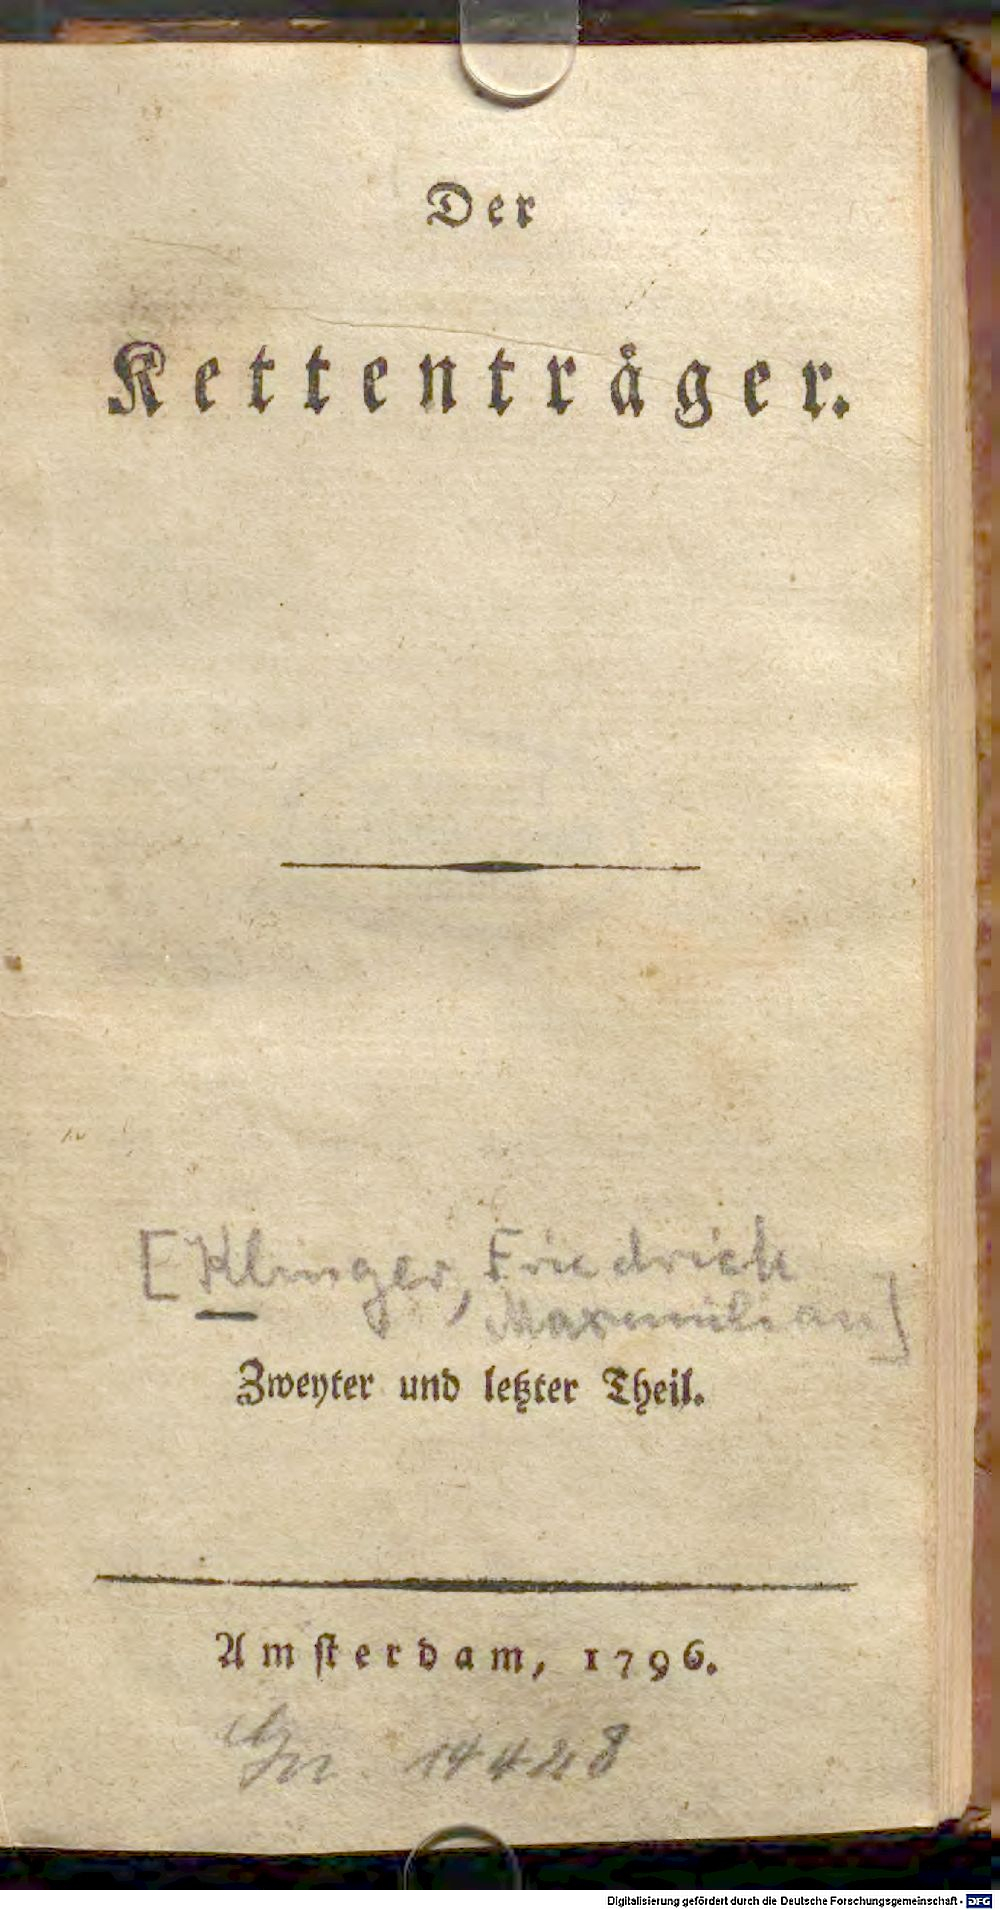 Der
Kettenträger.
[Klinger, Friedrich
Maxmilian]
Zweyter und letzter Theil.
Amsterdam, 1796.
14428
Digitalisierung gefördert durch die Deutsche Forschungsgemeinschaft - DFG